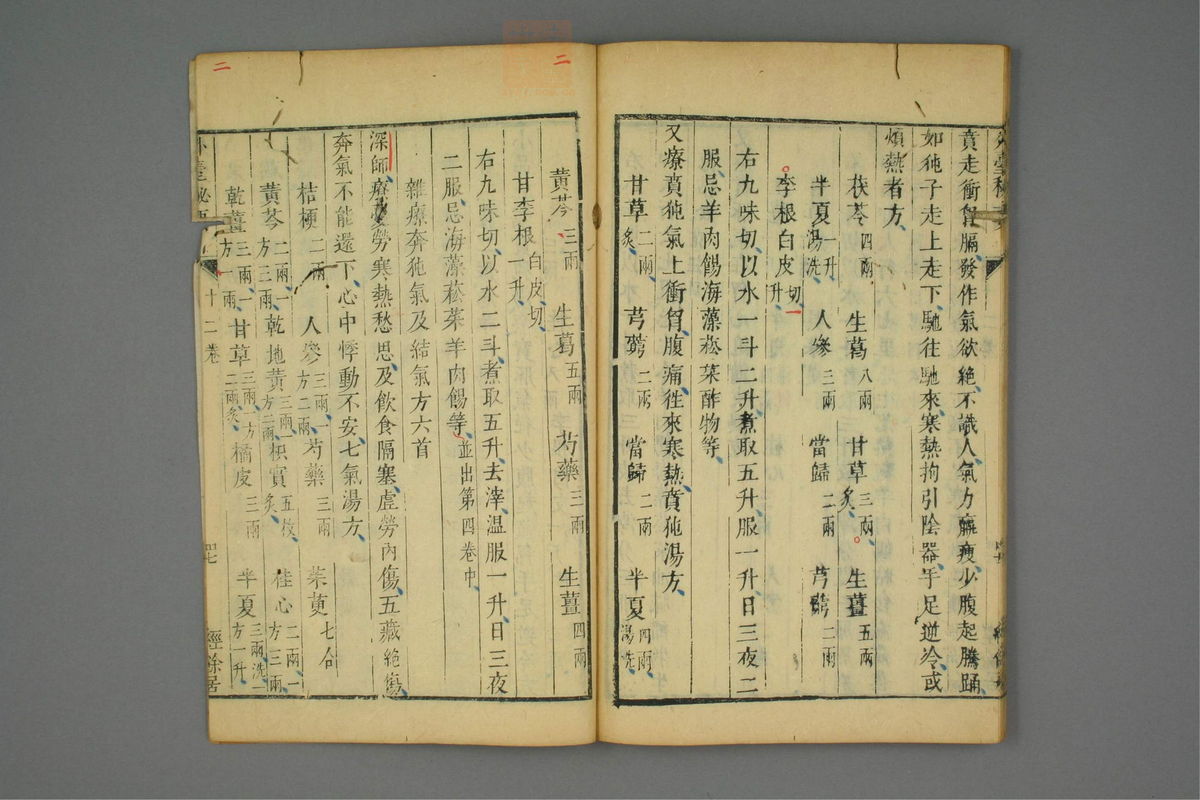 賁走衝胷膈發作氣欲絕不識人氣力羸瘦少腹起騰踊
如㹠子走上走下馳往馳來寒熱拘引陰器手足逆冷或
煩熱者方
茯苓四兩 生葛八兩 甘草三兩炙 生薑五兩
半夏一升湯洗 人參三兩 當歸二兩 芎藭二兩
李根白皮切一升
右九味切以水一斗二升煮取五升服一升日三夜二
服忌羊肉餳海藻菘菜酢物等
又療賁㹠氣上衝胷腹痛徃來寒熱賁㹠湯方
甘草二兩炙 芎藭二兩 當歸二兩 半夏四兩湯洗
黃芩三兩 生葛五兩 芍藥三兩 生薑四兩
甘李根白皮切一升
右九味切以水二斗煮取五升去滓温服一升日三夜
二服忌海藻菘菜羊肉餳等並出第四卷中
雜療奔㹠氣及結氣方六首
深師療勞寒熱愁思及飲食隔塞虛勞內傷五藏絕傷
奔氣不能還下心中悸動不安七氣湯方
桔梗二兩 人參三兩一方二兩 芍藥三兩 茱萸七合
黃芩二兩一方三兩 乾地黃三兩一方二兩 枳實五枚炙 桂心二兩一方三兩
乾薑三兩一方一兩 甘草三兩一方二兩炙 橘皮三兩 半夏三兩洗一方一升
外臺秘要 十二卷 四七 經餘居
二
二